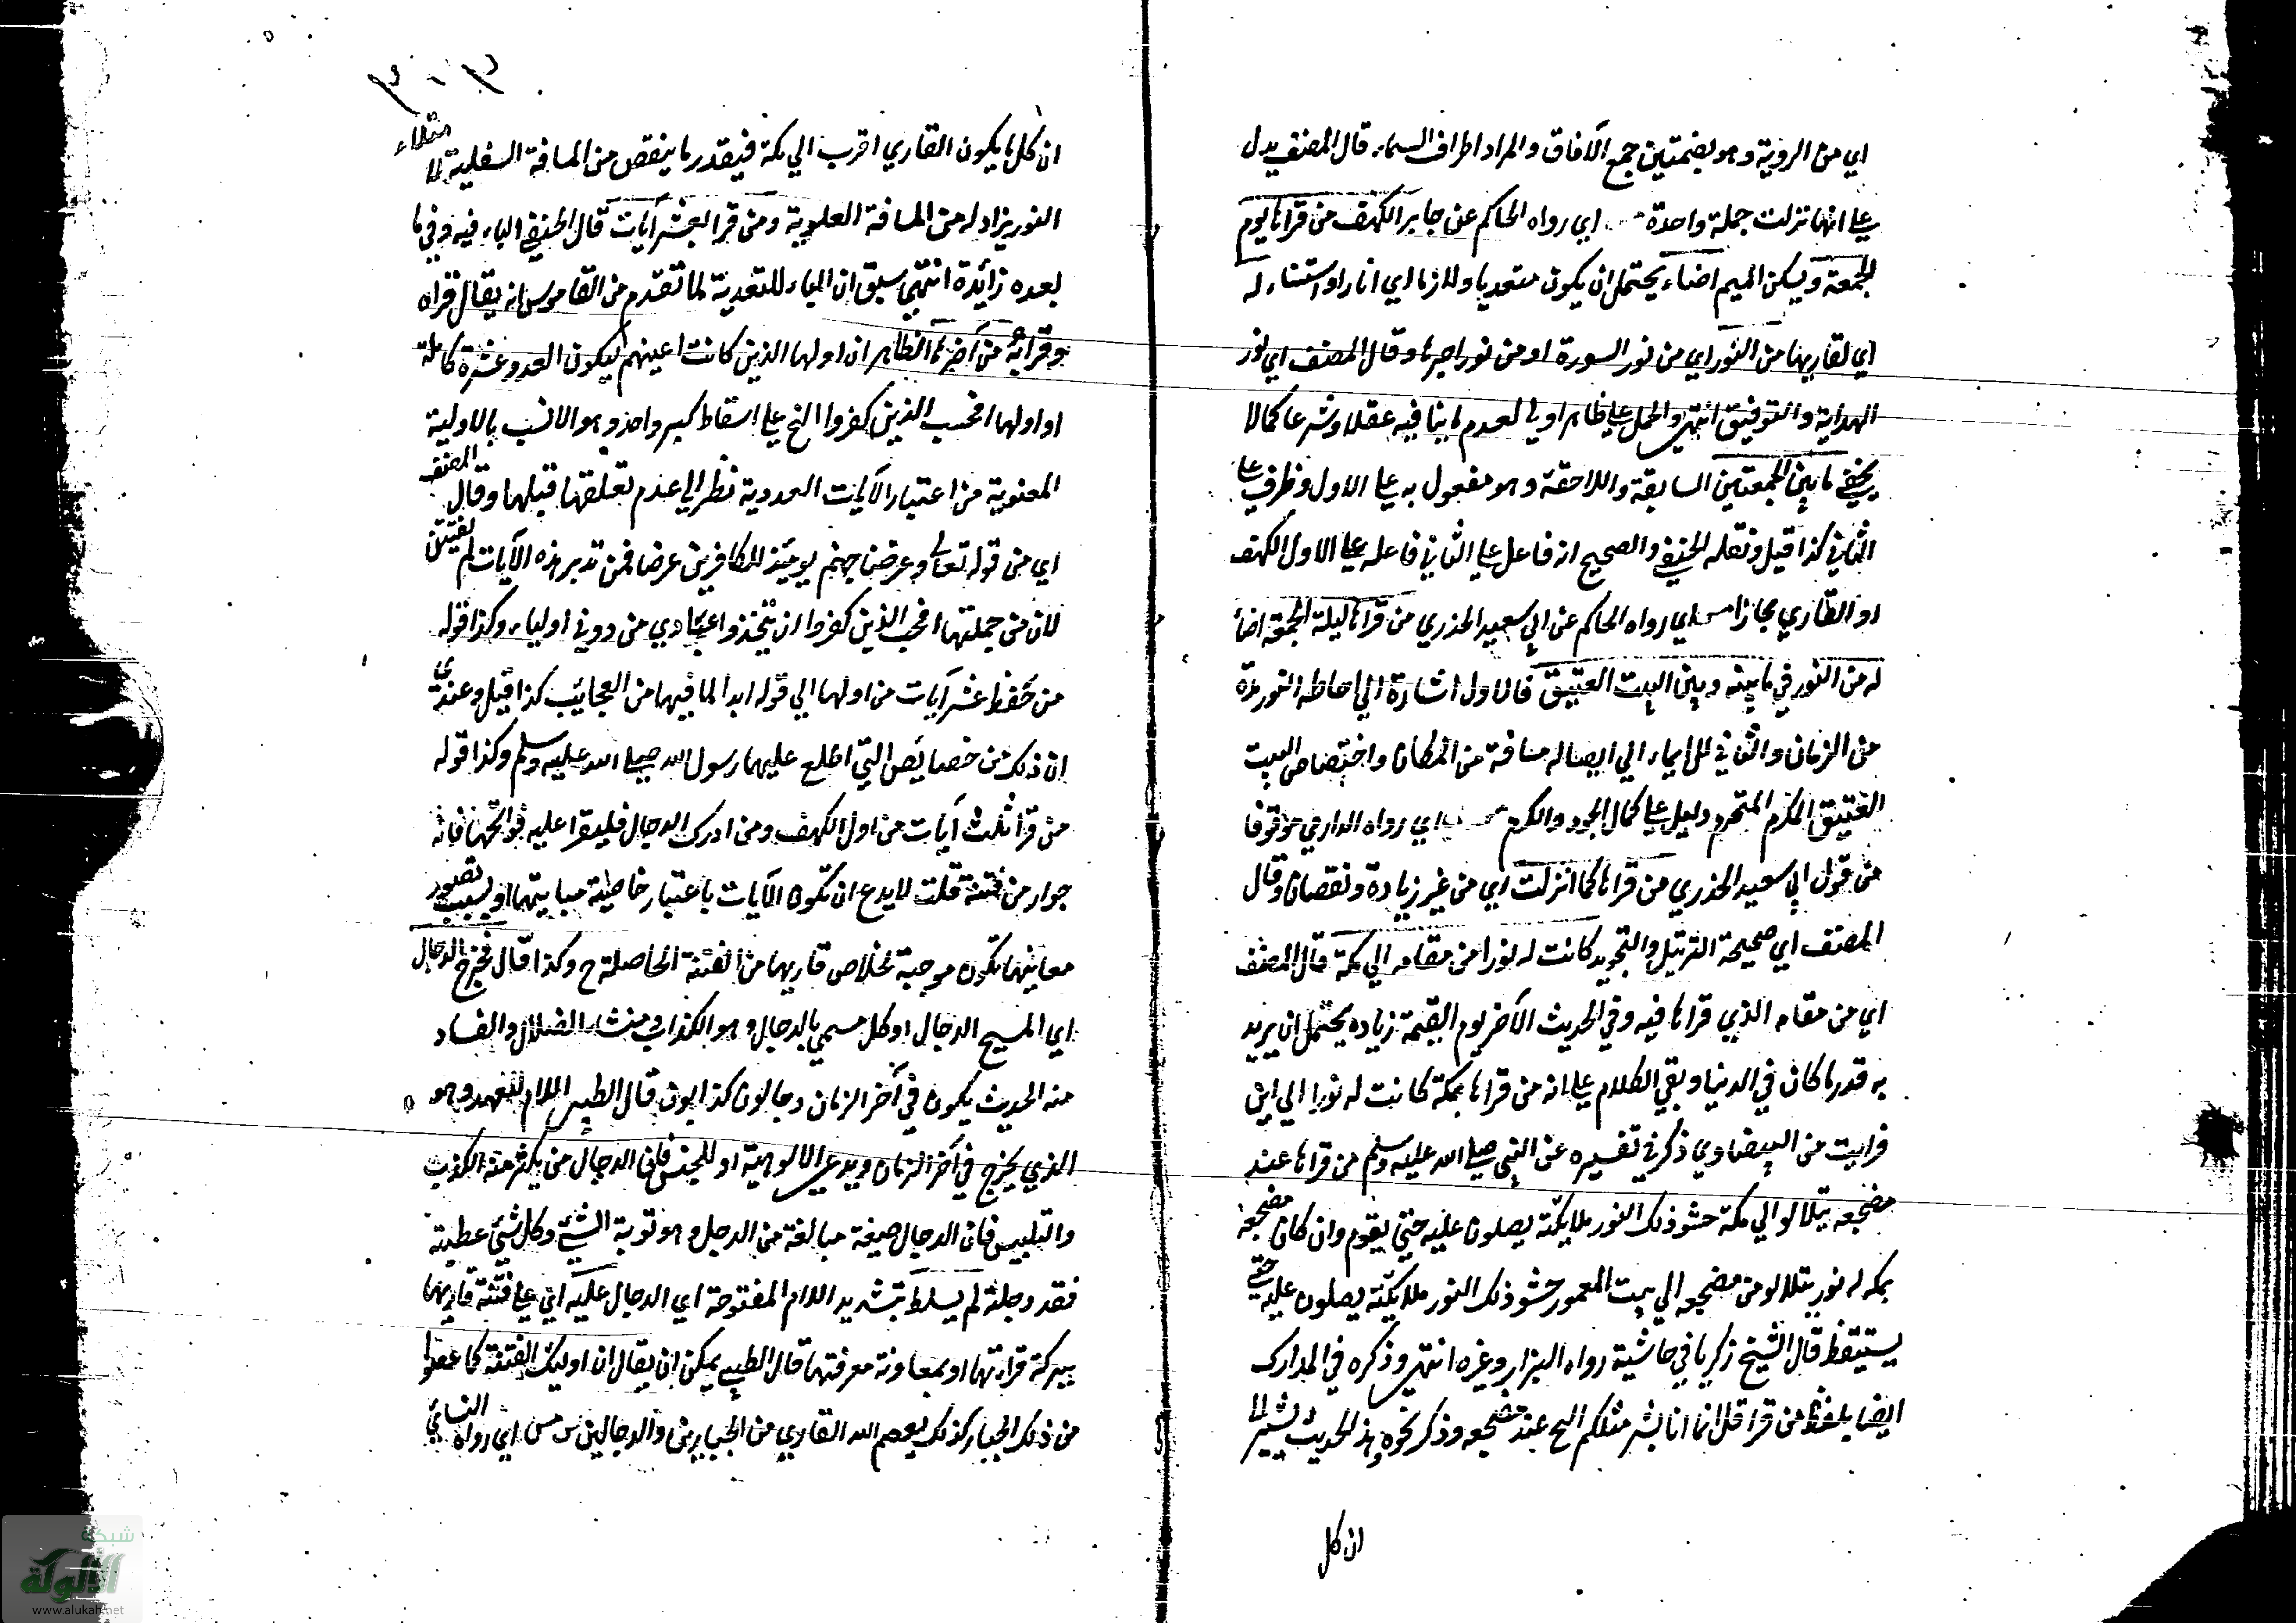 اي من الروية وهو بضمتين جمع الآفاق والمراد اطراف السماء قال المصنف يدل
علي انها نزلت جملة واحدة اي رواه الحاكم عن جابر الكهف من قراها يوم
الجمعة ويسكن الميم اضاء يحتمل ان يكون متعديا ولازما اي انار او استناء له
اي لقاريها من النور اي من نور السورة او من نور اجرها وقال المصنف اي نور
الهداية والتوفيق انتهي والحمل علي ظاهر اولي لعدم ما ينافيه عقلا وشرعا كما لا
يخفي ما بين الجمعتين السابقة واللاحقة وهو مفعول به علي الاول وظرف علي
الثاني كذا قيل ونقله الحنفي والصحيح انه فاعل علي الثاني فاعله علي الاول الكهف
او القاري مجازا مس اي رواه الحاكم عن ابي سعيد الخدري من قراها ليلة الجمعة اضا
له من النور في ما بينه وبين البيت العتيق فالاول اشارة الي احاطه النور مدة
من الزمان والثاني للايماء الي ايصاله مسافة من المكان واختصاص البيت
العتيق المكرم المتحرم دليل علي كمال الجود والكرم اي رواه الدارمي موقوفا
من قول ابي سعيد الخدري من قراها كما انزلت اي من غير زيادة ونقصان وقال
المصنف اي صحيحة الترتيل والتجويد كانت له نورا من مقامه الي مكة قال المصنف
اي من مقامه الذي قراها فيه وفي الحديث الآخر يوم القيمة زيادة يحتمل ان يريد
به قدر ما كان في الدنيا وبقي الكلام علي انه من قراها بمكة كانت له نورا الي اين
فرايت من البيضاوي ذكر في تفسيره عن النبي صلي الله عليه وسلم من قراها عند
مضجعه يتلالو الي مكة حشو ذلك النور ملايكة يصلون عليه حتي يقوم وان كان مضجعه
بمكه له نور يتلالو من مضجعه الي بيت المعمور حشو ذلك النور ملايكة يصلون عليه حتي
يستيقظ قال الشيخ زكريا في حاشية رواه البزار وغيره انتهي وذكره في المدارك
ايضا بلفظ من قرا قل انما انا بشر مثلكم الخ عند مضجعه وذكر نحوه وهذا الحديث يشير الي
ان كل
ان كل ما يكون القاري اقرب الي مكة فيقدر ما ينقص من المسافة السفلية لا متلاء
النور يزاد له من المسافة العلوية ومن قرا بعشر آيات قال الحنفي الباء فيه وفي ما
بعده زائدة انتهي سبق ان الباء للتعدية لما تقدم من القاموس انه يقال قراه
وقرا به من آخرها الظاهر ان اولها الذين كانت اعينهم ليكون العدد عشرة كاملة
او اولها افحسب الذين كفروا الخ علي اسقاط كسر واحد وهو الانسب بالاولية
المعنوية من اعتبار الآيات العددية نظر الي عدم تعلقها قبلها وقال المصنف
اي من قوله تعالي وعرضنا جهنم يومئذ للكافرين عرضا فمن تدبر هذه الآيات لم يفتتن
لان من جملتها افحسب الذين كفروا ان يتخذوا عبادي من دوني اولياء وكذا قوله
من حفظ عشر آيات من اولها الي قوله ابدا لما فيها من العجايب كذا قيل وعندي
ان ذلك من خصايص التي اطلع عليها رسول الله صلي الله عليه وسلم وكذا قوله
من قرا ثلث آيات من اول الكهف ومن ادرك الدجال فليقرا عليه فواتحها فانه
جوار من فتنة قلت لا يدع ان تكون الآيات باعتبار خاصية مبانيها او بسبب تصور
معانيها تكون موجبة لخلاص قاريها من الفتنة الحاصلة ح وكذا قال فخرج الدجال
اي المسيح الدجال او كل مسمي بالدجال وهو الكذاب منشا الضلال والفساد
منه الحديث يكون في آخر الزمان دجالون كذابون قال الطيبي اللام للعهد وهو
الذي يخرج في آخر الزمان ويدعي الالوهية او للجنس فان الدجال من يكثر منه الكذب
والتلبيس فان الدجال صيغة مبالغة من الدجل وهو توبة الشيء وكل شيء عطيته
فقد دجلته لم يسلط بتشديد اللام المفتوحة اي الدجال عليه اي علي فتنة قاريها
ببركة قراءتها او بمعاونة معرفتها قال الطيبي يمكن ان يقال ان اوليك الفتنة كما عصموا
من ذلك الجبار كذلك يعصم الله القاري من الجبارين والدجالين س مس اي رواه النسائي
شبكة
الألوكة
www.alukah.net